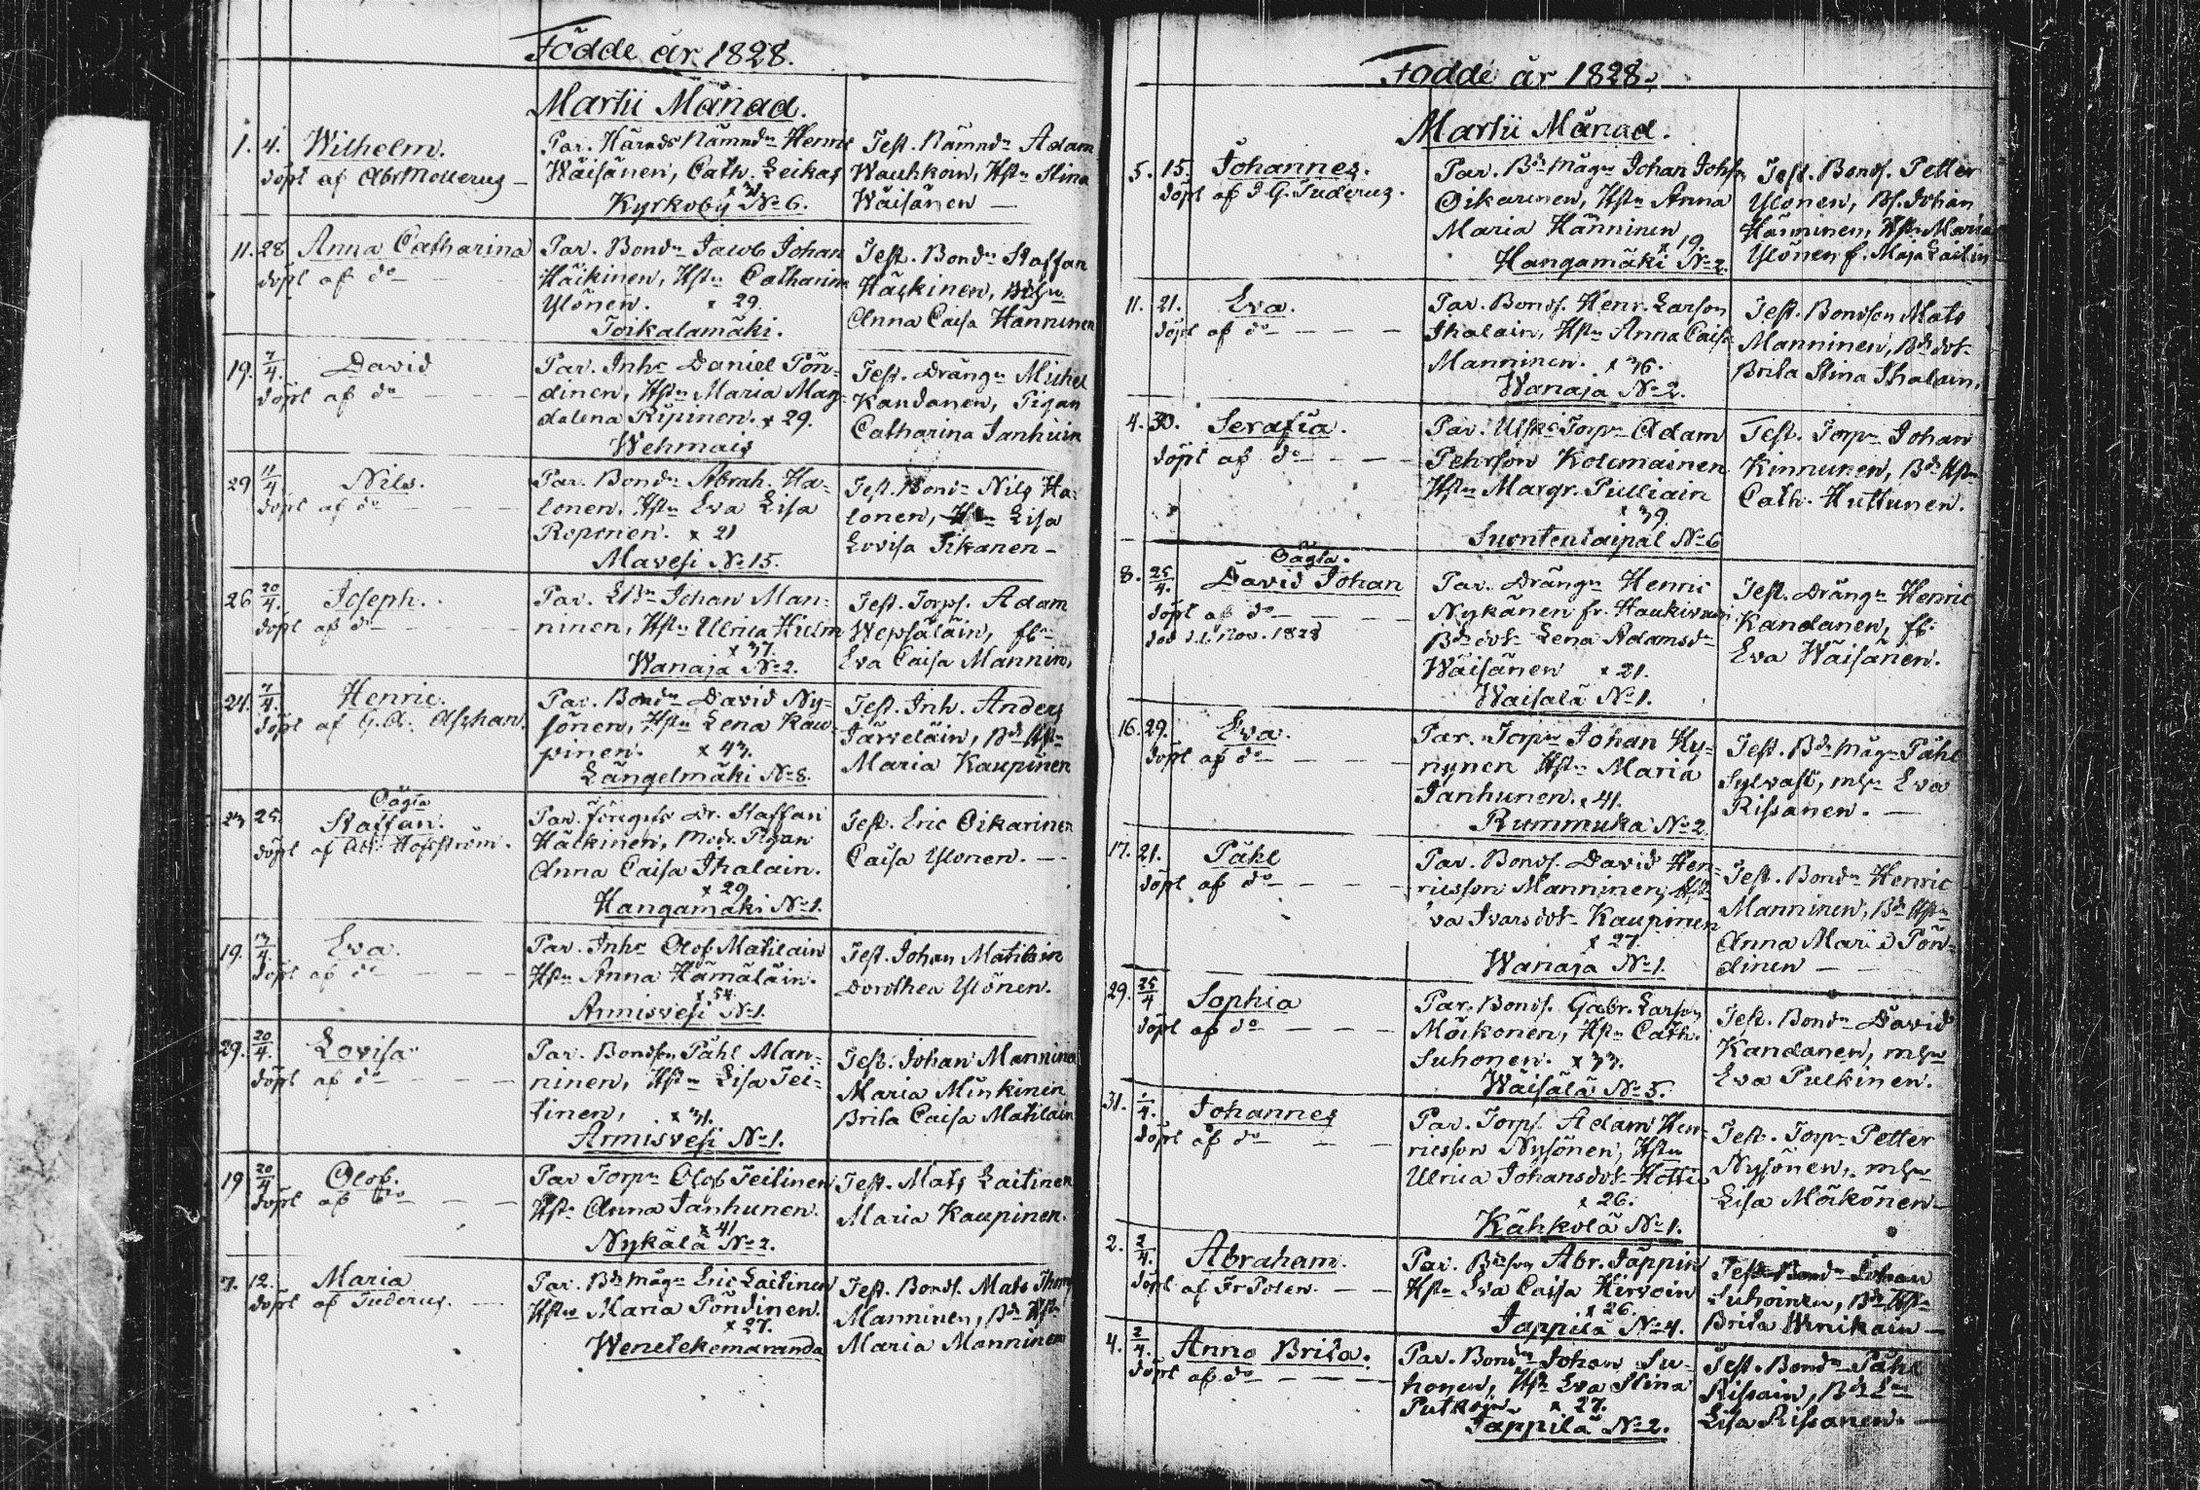 Födde år 1828.
Martii Månad.
1. 4. Wilhelm.
döpt af Abr Mollerus
Par. Härads Nämndn Henric
Wäisänen, Cath. Leikas
Kyrkoby No 6.
Test. Nämndn Adam
Wauhkoin, Hstn Stina
Wäisänen
11. 28. Anna Catharina
döpt af do
Par. Bondn Jacob Johan
Häckinen, Hstn Catharina
Ylönen. x 29.
Toikalamäki.
Test. Bondn Staffan
Häckinen,
Anna Caisa Hänninen
19. 7/4. David
döpt af do
Par. Inhs Daniel Pön-
dinen, Hstn Maria Mag-
dalena Ripinen. x 29.
Wehmais
Test. Drängn Michel
Kandanen, Pigan
Catharina Janhuin
29 11/4 Nils.
döpt af do
Par. Bondn Abrah. Ha-
lonen, Hstn Eva Lisa
Roponen. x 21
Mavesi No 15.
Test. Bondn Nils Ha-
lonen, Lisa
Lovisa Tikanen
26 20/4. Joseph.
döpt af do
Par. Johan Man-
ninen, Hstn Ulrica Hulm
x 37.
Wanaja No 2.
Test. Torps. Adam
Wepsäläin,
Eva Caisa Mannin,
24. 7/4. Henric.
döpt af G. A. Aschan.
Par. Bondn David Ny-
sönen, Hstn Lena Kau-
pinen. x 43.
Längelmäki No 8.
Test. Inh. Anders
Järveläin, Bd Hstn
Maria Kaupinen
23 25. Oägta
Staffan.
döpt af Hoffström.
Par. föregifs Dr. Staffan
Häckinen, Mod. Pigan
Anna Caisa Ihalain.
x 29
Hangamäki No 1.
Test. Eric Oikarinen
Caisa Ylonen.
19. 13/4. Eva.
döpt af do
Par. Inhs Olof Matilain
Hstn Anna Hämäläin.
x 54.
Armisvesi No 1.
Test. Johan Matilain
Dorothea Ylönen.
29. 20/4. Lovisa
döpt af do
Par. Bondson Påhl Man-
ninen, Hstn Lisa Tei-
tinen, x 31.
Armisvesi No 1.
Test. Johan Mannina
Maria Minkinin
Brita Caisa Matilain
19 20/4 Olof.
döpt af do
Par Torpn Olof Teitinen
Hstn Anna Janhunen.
x 41
Nykälä No 2.
Test. Mats Laitinen
Maria Kaupinen.
7. 12. Maria
döpt af Tuderus.
Par. Bd mågn Eric Laitinen
Hstn Maria Pöndinen.
x 27.
Wenetekemaranda
Test. Bonds. Mats Thom
Manninen, Bd Hstn
Maria Manninen
Födde år 1828.
Martii Månad.
5. 15. Johannes.
döpt af J. G. Tuderus.
Par. Bd mågn Johan Johsn
Oikarinen, Hstn Anna
Maria Hänninen
x 19.
Hangamäki No 2.
Test. Bonds. Petter
Ylonen, Bs. Johan
Hänninen, Hstn Maria
Ylönen f. Maja Laitin
11. 21. Eva.
döpt af do
Par. Bonds. Henr. Larson
Ihalain, Hstn Anna Caisa
Manninen. x 36.
Wanaja No 2.
Test. Bondson Mats
Manninen, Bd dotr
Brita Stina Ihalain.
4. 30. Serafia.
döpt af do
Par. Torpn Adam
Pehrson Kolemainen
Hstn Margr. Pulliain
x 39.
Suontentaipal No 6
Test. Torpn Johan
Kinnunen, Bd Hstn
Cath. Huttunen.
8. 25/4. Oägta.
David Johan
döpt af do
död d. 6 Nov. 1828
Par. Drängn Henric
Nykänen fr. Haukivuori
Bd dotr Lena Adamsdr
Wäisänen x 21.
Waisalä No 1.
Test. Drängn Henric
Kandanen,
Eva Wäisänen.
16. 29. Eva.
döpt af do
Par. Torpn Johan Ky-
nynen Hstn Maria
Janhunen. x 41.
Rummuka No 2.
Test. Bd mågn Påhl
Sylvast, Eva
Rissanen.
17. 21. Påhl
döpt af do
Par. Bonds. David Hen-
ricsson Manninen, Hstn
va Ivarsdotr Kaupinen
x 27.
Wanaja No 1.
Test. Bondn Henric
Manninen, Bd Hstn
Anna Maria Pön-
dinen
29. 25/4 Sophia
döpt af do
Par. Bonds. Gabr. Larson
Möikönen, Hstn Cath.
Suhonen. x 33.
Wäisälä No 5.
Test. Bondn David
Kandanen,
Eva Pulkinen.
31. /4. Johannes
döpt af do
Par. Torps. Adam Hen-
ricsson Nysönen, Hstn
Ulrica Johansdotr Hotti
x 26.
Kähkölä No 1.
Test. Torpn Petter
Nysönen,
Lisa Möikönen
2. 2/4. Abraham.
döpt af Fr Polen.
Par. Bdson Abr. Jäppin
Hstn Eva Caisa Hirvoin
x 26.
Jäppilä No 4.
Test. Bondn Johan
Suhoinen, Bd Hstn
Brita
4. 2/4. Anna Brita.
döpt af do
Par. Bondn Johan Su-
honen, Hstn Eva Stina
x 27.
Jäppilä No 2.
Test. Bondn Påhl
Rissain,
Lisa Rissanen.